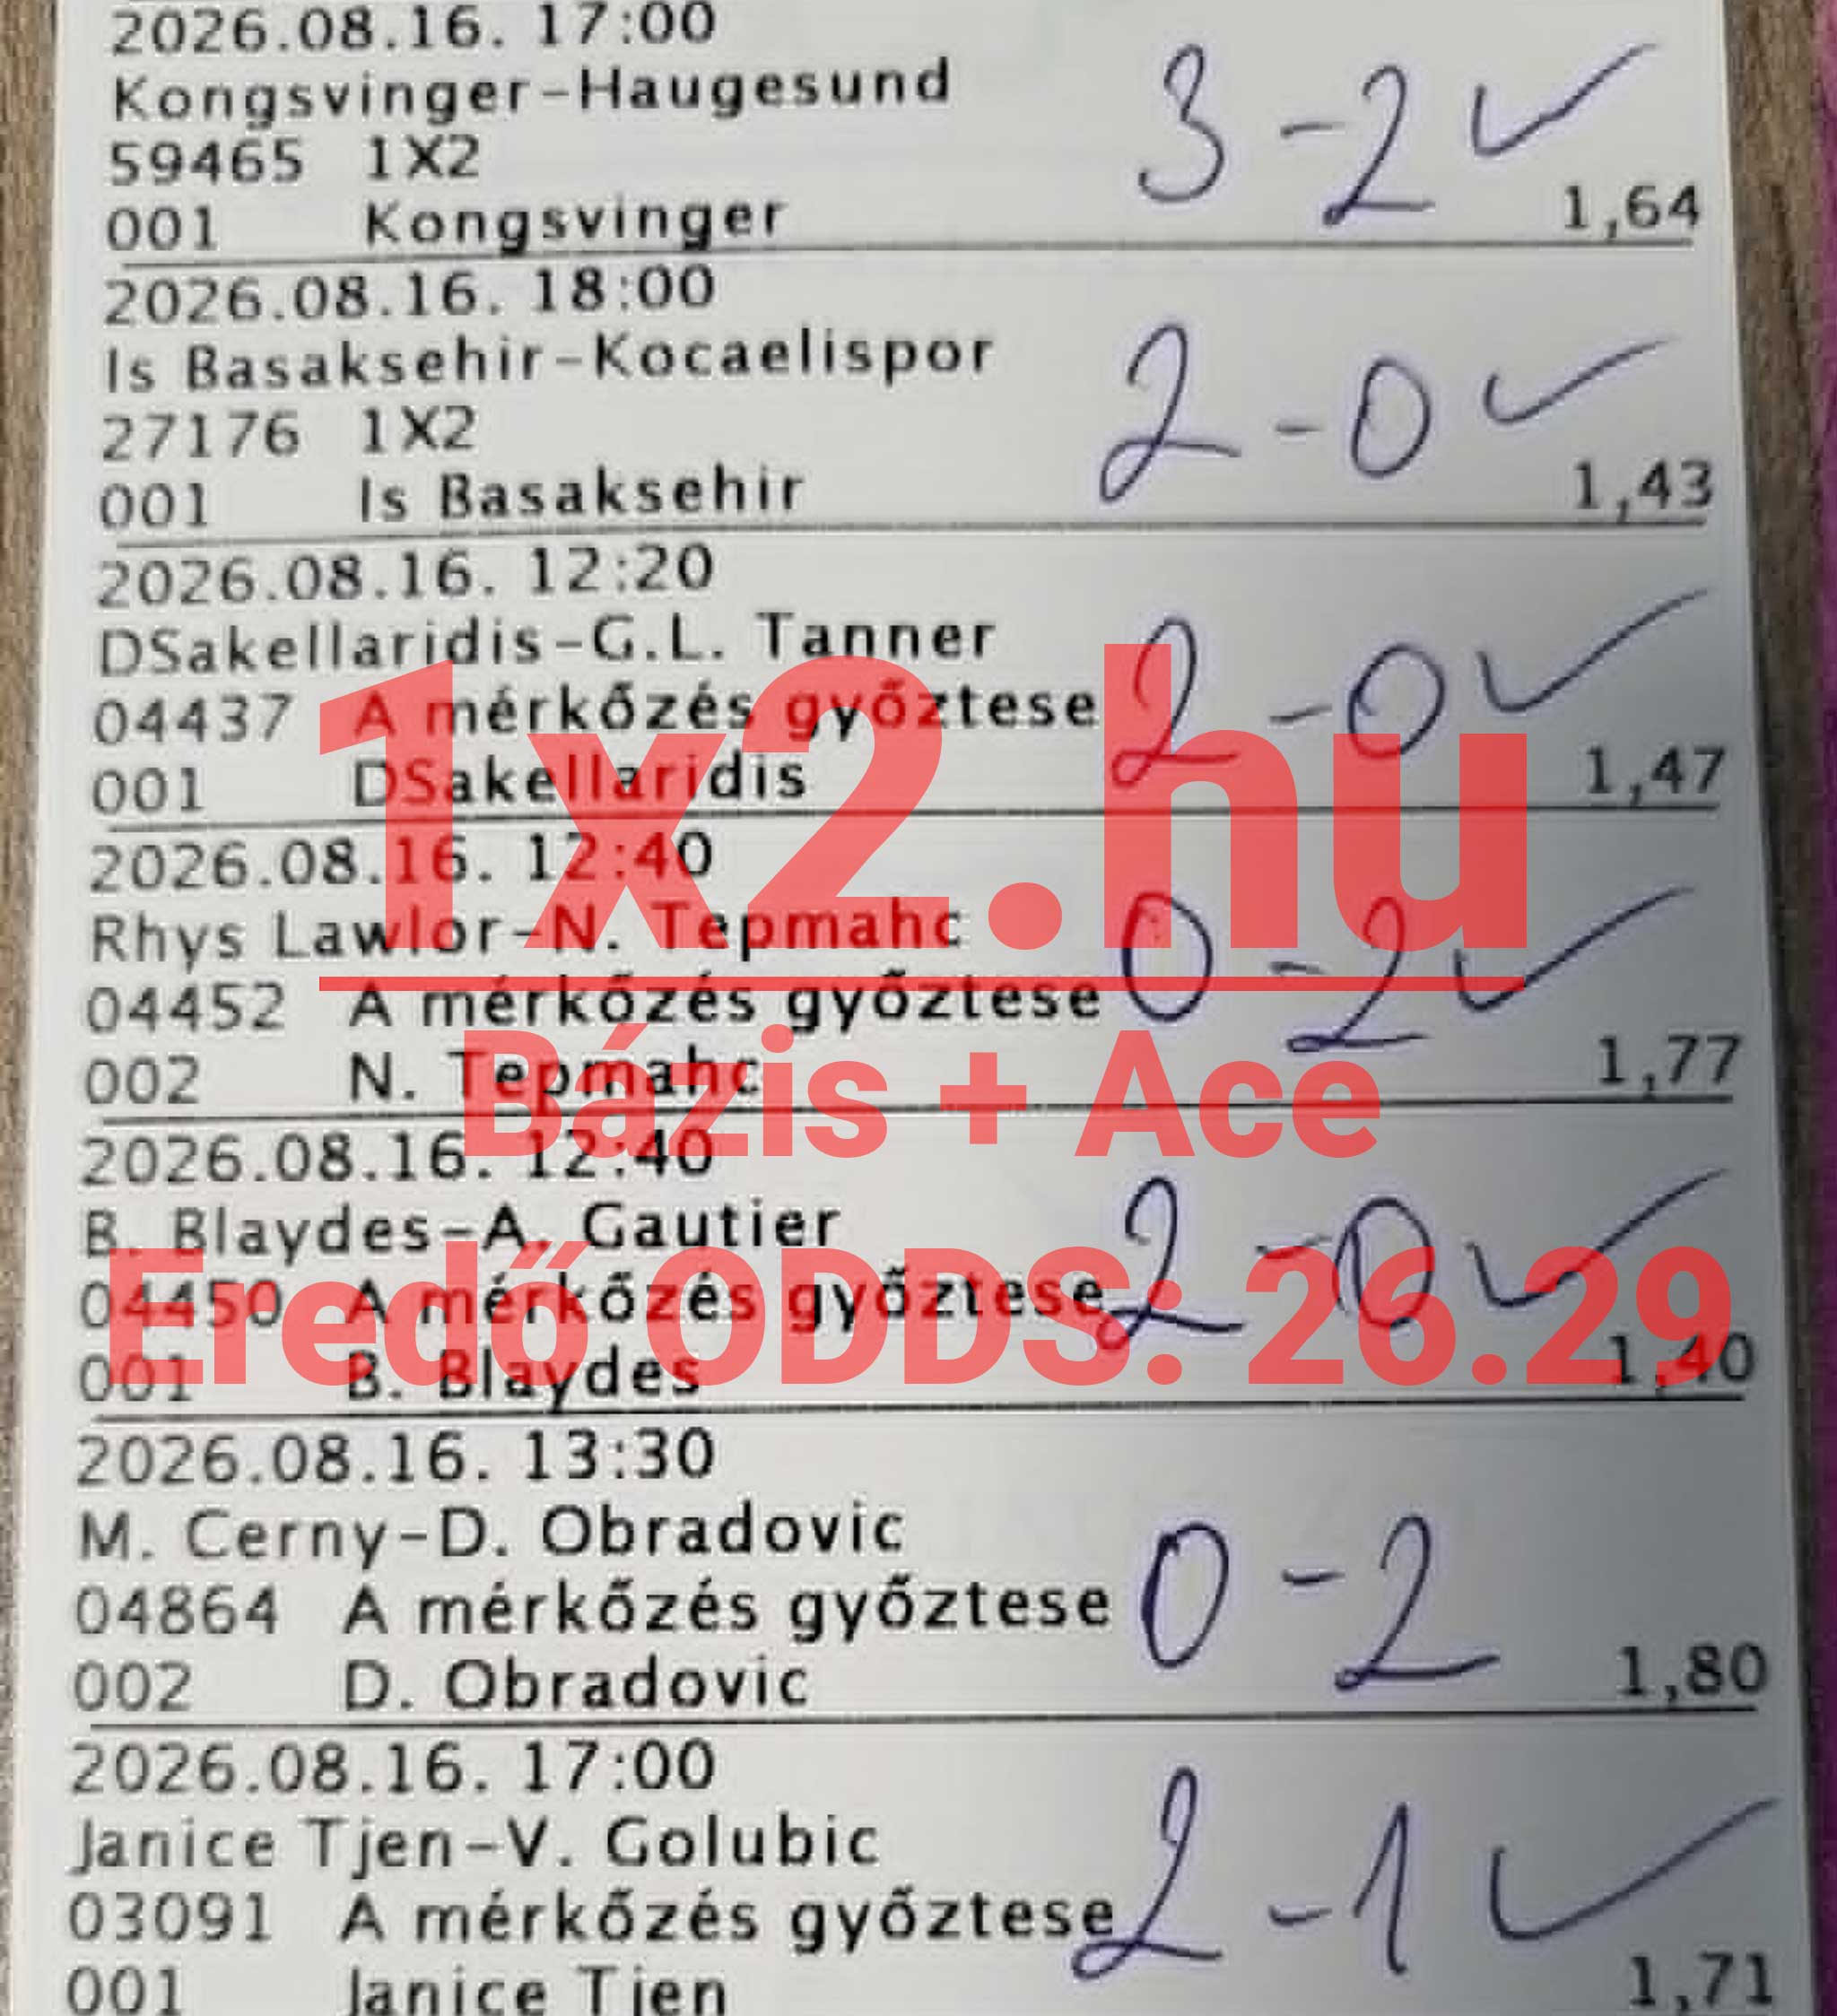 2026.08.16. 17:00
Kongsvinger-Haugesund
3-2 ✓
59465 1X2
001 Kongsvinger 1,64
2026.08.16. 18:00
Is Basaksehir-Kocaelispor
2-0 ✓
27176 1X2
001 Is Basaksehir 1,43
2026.08.16. 12:20
DSakellaridis-G.L. Tanner
2-0 ✓
04437 A mérkőzés győztese
001 DSakellaridis 1,47
1x2.hu
2026.08.16. 12:40
Rhys Lawlor-N. Tepmahc
0-2 ✓
04452 A mérkőzés győztese
002 N. Tepmahc 1,77
Bázis + Ace
2026.08.16. 12:40
B. Blaydes-A. Gautier
2-0 ✓
04450 A mérkőzés győztese
Eredő ODDS: 26.29
001 B. Blaydes 1,40
2026.08.16. 13:30
M. Cerny-D. Obradovic
0-2
04864 A mérkőzés győztese
002 D. Obradovic 1,80
2026.08.16. 17:00
Janice Tjen-V. Golubic
2-1 ✓
03091 A mérkőzés győztese
001 Janice Tjen 1,71